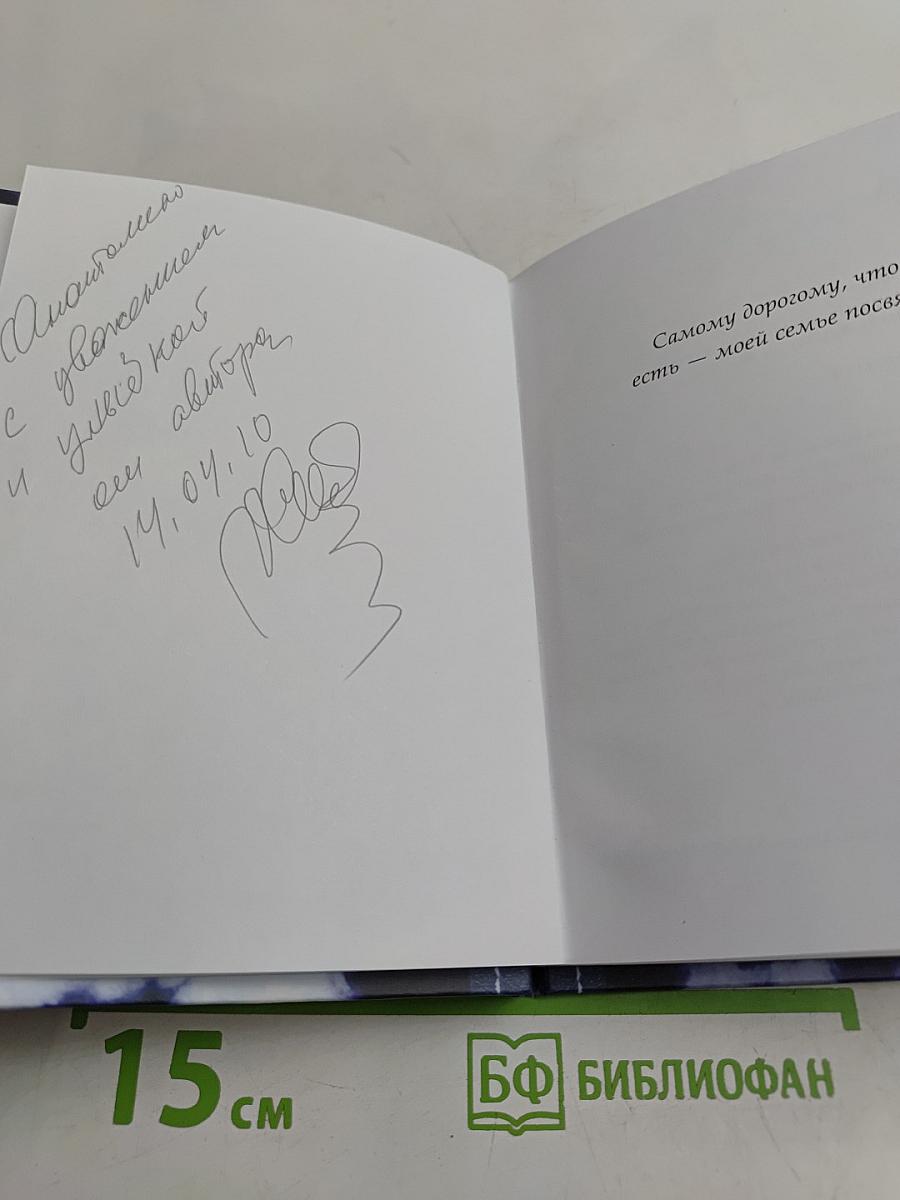 Анатолию
с уважением
и улыбкой
от автора
14.04.10
Самому дорогому, что
есть — моей семье посвя
15 см
БФ БИБЛИОФАН